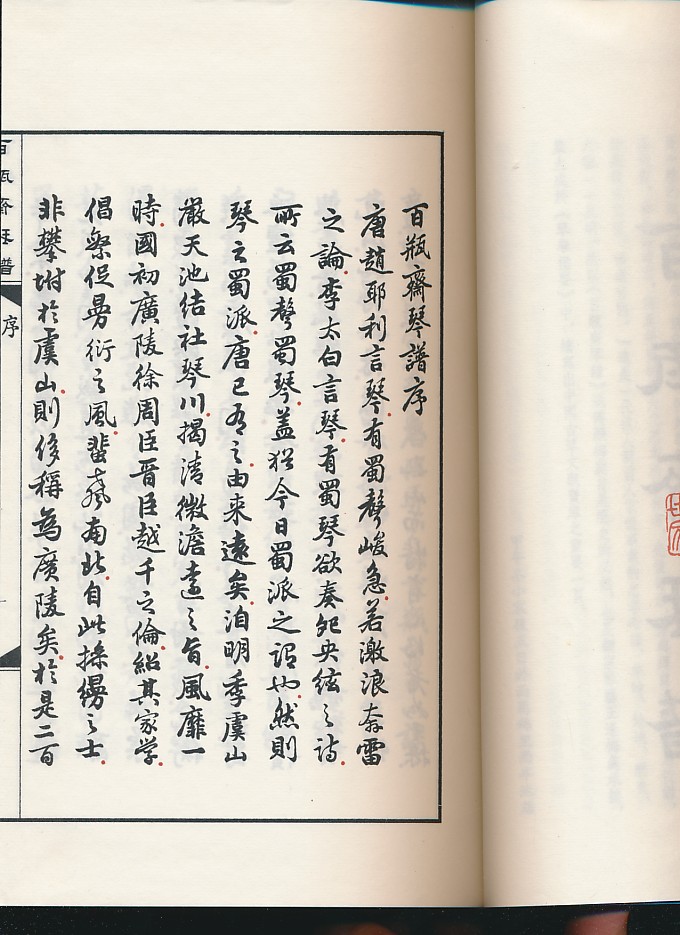 百瓶齋琴譜序
唐趙耶利言琴有蜀聲峻急若激浪奔雷
之論李太白言琴有蜀琴欲奏鴛鴦絃之詩
所云蜀聲蜀琴蓋猶今日蜀派之謂也然則
琴之蜀派唐已有之由來遠矣洎明季虞山
嚴天池結社琴川揭清微澹遠之旨風靡一
時國初廣陵徐周臣晉臣越千之倫紹其家学
倡繁促曼衍之風蜚聲南北自此操縵之士
非攀坿於虞山則侈稱為廣陵矣於是二百
百瓶齋琴譜
序